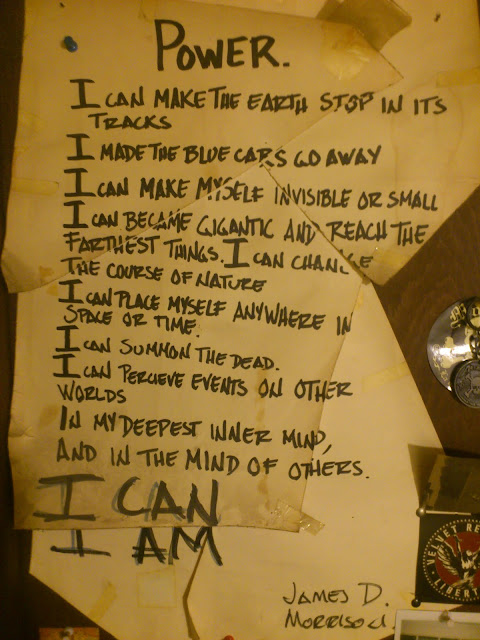 POWER.
I CAN MAKE THE EARTH STOP IN ITS
TRACKS
I MADE THE BLUE CARS GO AWAY
I CAN MAKE MYSELF INVISIBLE OR SMALL
I CAN BECAME GIGANTIC AND REACH THE
FARTHEST THINGS. I CAN CHANGE
THE COURSE OF NATURE
I CAN PLACE MYSELF ANYWHERE IN
SPACE OR TIME.
I CAN SUMMON THE DEAD.
I CAN PERCIEVE EVENTS ON OTHER
WORLDS
IN MY DEEPEST INNER MIND,
AND IN THE MIND OF OTHERS.
I CAN
I AM
JAMES D.
MORRISON.
VELVET RE
LIBERT